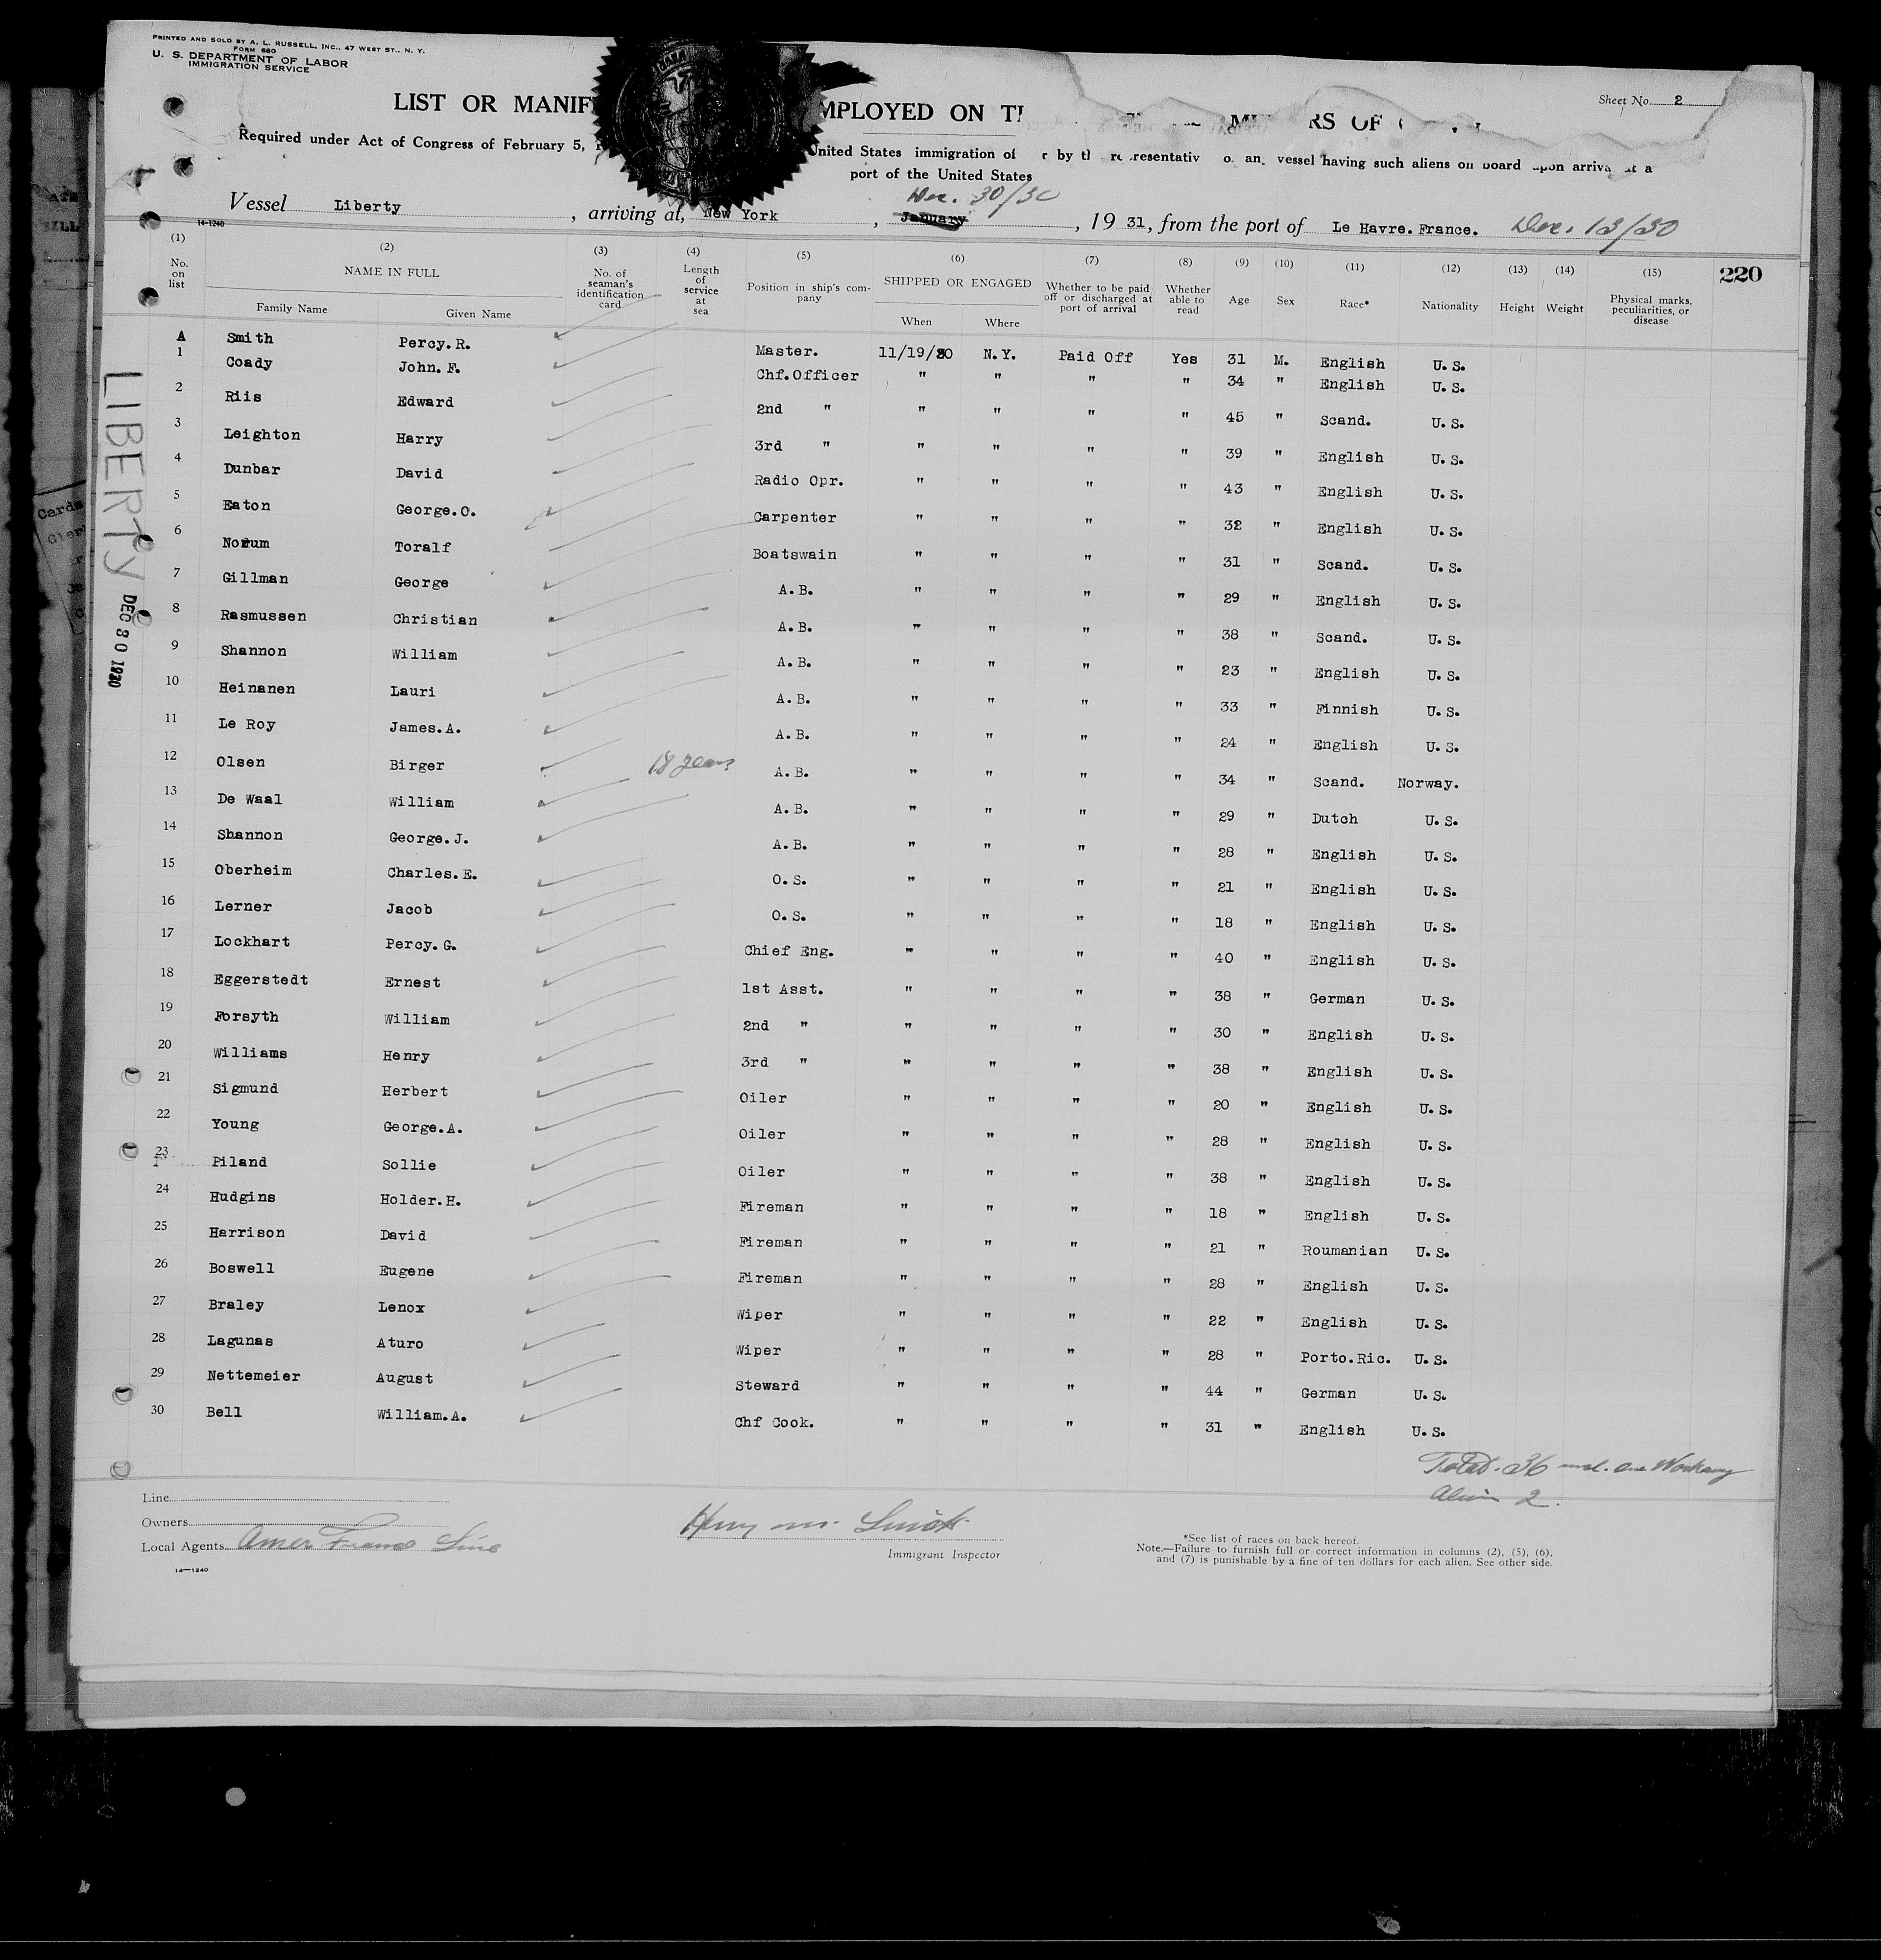 PRINTED AND SOLD BY A. L. RUSSELL, INC., 47 WEST ST., N. Y.
FORM 680
U. S. DEPARTMENT OF LABOR
IMMIGRATION SERVICE
Sheet No. 2
LIST OR MANIF MPLOYED ON TH RS OF
Required under Act of Congress of February 5, United States immigration of r by th representativ o any vessel having such aliens on board upon arriva at a
port of the United States
Dec. 30/30
Vessel Liberty, arriving at, New York, January, 19 31, from the port of Le Havre. France. Dec. 13/30
14-1240
220
(1) (2) (3) (4) (5) (6) (7) (8) (9) (10) (11) (12) (13) (14) (15)
No. on list NAME IN FULL No. of seaman's identification card Length of service at sea Position in ship's company SHIPPED OR ENGAGED Whether to be paid off or discharged at port of arrival Whether able to read Age Sex Race* Nationality Height Weight Physical marks, peculiarities, or disease
Family Name Given Name When Where
A Smith Percy. R. Master. 11/19/30 N.Y. Paid Off Yes 31 M. English U. S.
1 Coady John. F. Chf. Officer " " " " 34 " English U. S.
2 Riis Edward 2nd " " " " " 45 " Scand. U. S.
3 Leighton Harry 3rd " " " " " 39 " English U. S.
4 Dunbar David Radio Opr. " " " " 43 " English U. S.
5 Eaton George. O. Carpenter " " " " 32 " English U. S.
6 Norum Toralf Boatswain " " " " 31 " Scand. U. S.
7 Gillman George A. B. " " " " 29 " English U. S.
8 Rasmussen Christian A. B. " " " " 38 " Scand. U. S.
9 Shannon William A. B. " " " " 23 " English U. S.
10 Heinanen Lauri A. B. " " " " 33 " Finnish U. S.
11 Le Roy James. A. A. B. " " " " 24 " English U. S.
12 Olsen Birger 18 years A. B. " " " " 34 " Scand. Norway.
13 De Waal William A. B. " " " " 29 " Dutch U. S.
14 Shannon George. J. A. B. " " " " 28 " English U. S.
15 Oberheim Charles. E. O. S. " " " " 21 " English U. S.
16 Lerner Jacob O. S. " " " " 18 " English U. S.
17 Lockhart Percy. G. Chief Eng. " " " " 40 " English U. S.
18 Eggerstedt Ernest 1st Asst. " " " " 38 " German U. S.
19 Forsyth William 2nd " " " " " 30 " English U. S.
20 Williams Henry 3rd " " " " " 38 " English U. S.
21 Sigmund Herbert Oiler " " " " 20 " English U. S.
22 Young George. A. Oiler " " " " 28 " English U. S.
23 Piland Sollie Oiler " " " " 38 " English U. S.
24 Hudgins Holder. H. Fireman " " " " 18 " English U. S.
25 Harrison David Fireman " " " " 21 " Roumanian U. S.
26 Boswell Eugene Fireman " " " " 28 " English U. S.
27 Braley Lenox Wiper " " " " 22 " English U. S.
28 Lagunas Aturo Wiper " " " " 28 " Porto. Ric. U. S.
29 Nettemeier August Steward " " " " 44 " German U. S.
30 Bell William. A. Chf Cook. " " " " 31 " English U. S.
LIBERTY
DEC 30 1930
Total. 36 incl. one Workaway
Alien 2.
Line
Owners
Local Agents Amer France Line
14—1240
Immigrant Inspector
*See list of races on back hereof.
Note.—Failure to furnish full or correct information in columns (2), (5), (6),
and (7) is punishable by a fine of ten dollars for each alien. See other side.